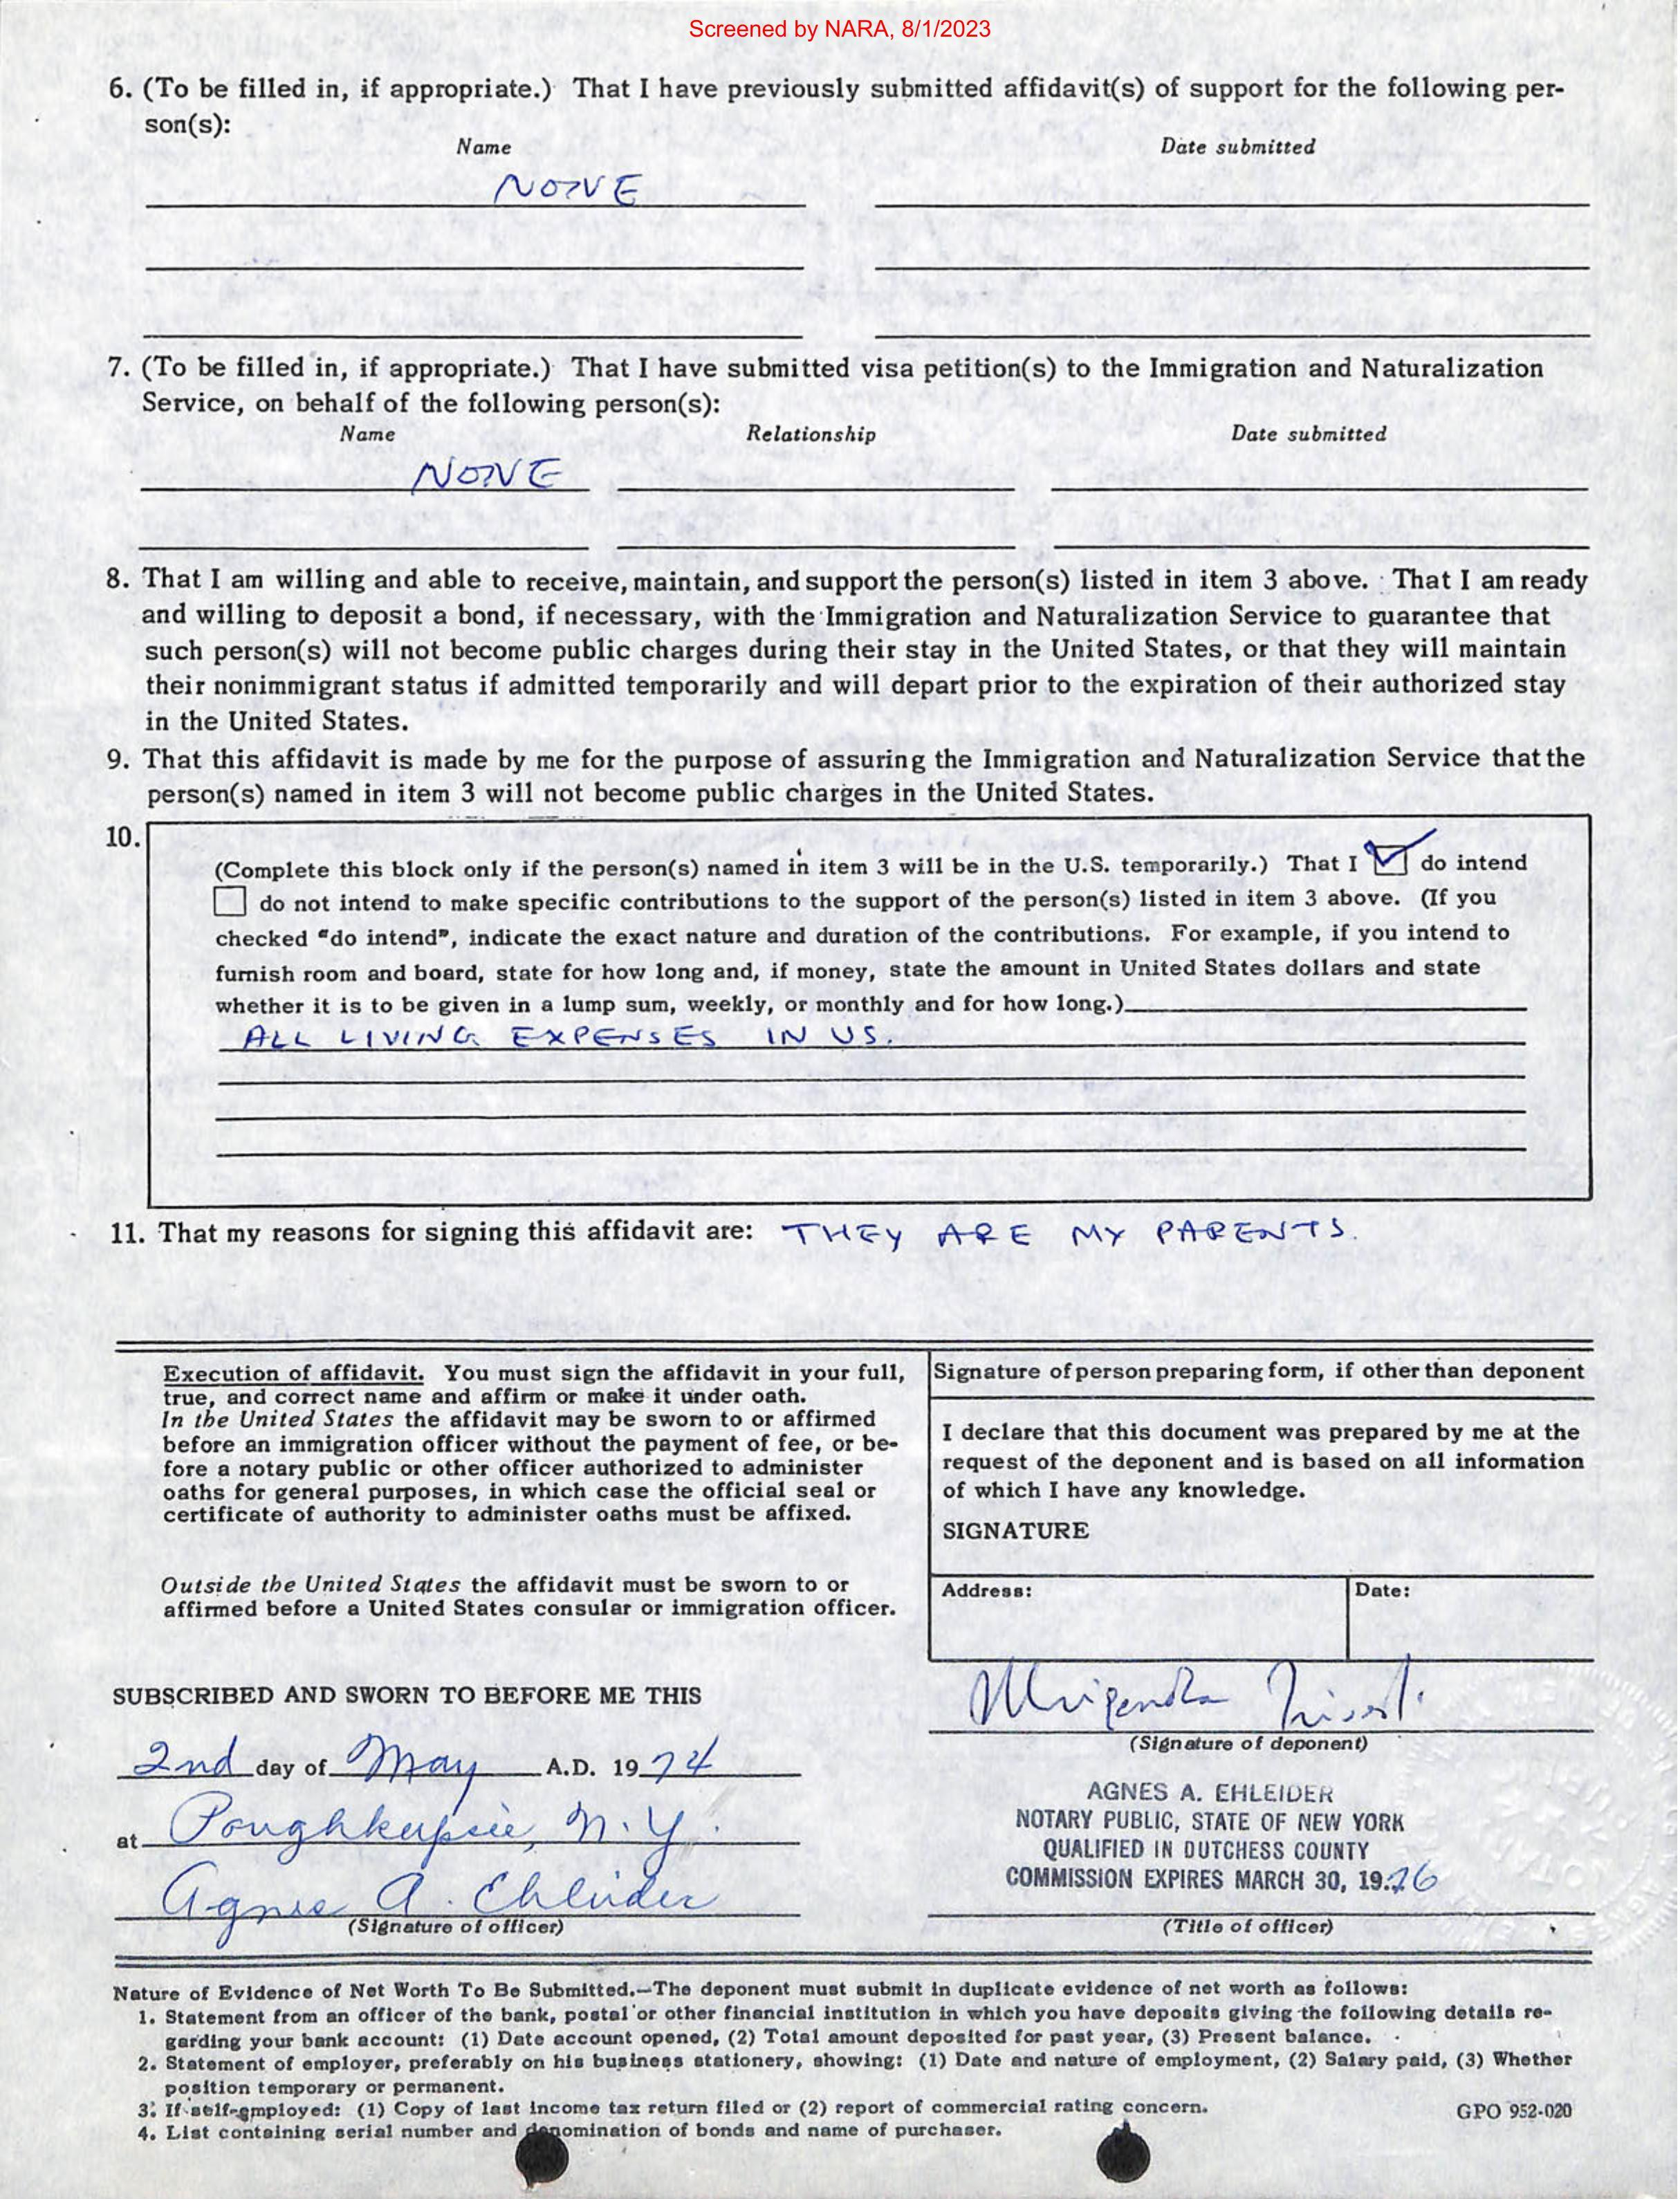 Screened by NARA, 8/1/2023
6. (To be filled in, if appropriate.) That I have previously submitted affidavit(s) of support for the following per-
son(s):
Name Date submitted
NONE
7. (To be filled in, if appropriate.) That I have submitted visa petition(s) to the Immigration and Naturalization
Service, on behalf of the following person(s):
Name Relationship Date submitted
NONE
8. That I am willing and able to receive, maintain, and support the person(s) listed in item 3 above. That I am ready
and willing to deposit a bond, if necessary, with the Immigration and Naturalization Service to guarantee that
such person(s) will not become public charges during their stay in the United States, or that they will maintain
their nonimmigrant status if admitted temporarily and will depart prior to the expiration of their authorized stay
in the United States.
9. That this affidavit is made by me for the purpose of assuring the Immigration and Naturalization Service that the
person(s) named in item 3 will not become public charges in the United States.
10.
(Complete this block only if the person(s) named in item 3 will be in the U.S. temporarily.) That I ☑ do intend
☐ do not intend to make specific contributions to the support of the person(s) listed in item 3 above. (If you
checked "do intend", indicate the exact nature and duration of the contributions. For example, if you intend to
furnish room and board, state for how long and, if money, state the amount in United States dollars and state
whether it is to be given in a lump sum, weekly, or monthly and for how long.)
ALL LIVING EXPENSES IN US.
11. That my reasons for signing this affidavit are: THEY ARE MY PARENTS.
Execution of affidavit. You must sign the affidavit in your full,
true, and correct name and affirm or make it under oath.
In the United States the affidavit may be sworn to or affirmed
before an immigration officer without the payment of fee, or be-
fore a notary public or other officer authorized to administer
oaths for general purposes, in which case the official seal or
certificate of authority to administer oaths must be affixed.
Outside the United States the affidavit must be sworn to or
affirmed before a United States consular or immigration officer.
Signature of person preparing form, if other than deponent
I declare that this document was prepared by me at the
request of the deponent and is based on all information
of which I have any knowledge.
SIGNATURE
Address: Date:
SUBSCRIBED AND SWORN TO BEFORE ME THIS
2nd day of May A.D. 1974
at Poughkeepsie, N.Y.
Agnes A. Ehleider
(Signature of officer)
Mrigendra
(Signature of deponent)
AGNES A. EHLEIDER
NOTARY PUBLIC, STATE OF NEW YORK
QUALIFIED IN DUTCHESS COUNTY
COMMISSION EXPIRES MARCH 30, 1976
(Title of officer)
Nature of Evidence of Net Worth To Be Submitted.—The deponent must submit in duplicate evidence of net worth as follows:
1. Statement from an officer of the bank, postal or other financial institution in which you have deposits giving the following details re-
garding your bank account: (1) Date account opened, (2) Total amount deposited for past year, (3) Present balance.
2. Statement of employer, preferably on his business stationery, showing: (1) Date and nature of employment, (2) Salary paid, (3) Whether
position temporary or permanent.
3. If self-employed: (1) Copy of last income tax return filed or (2) report of commercial rating concern.
4. List containing serial number and denomination of bonds and name of purchaser.
GPO 952-020